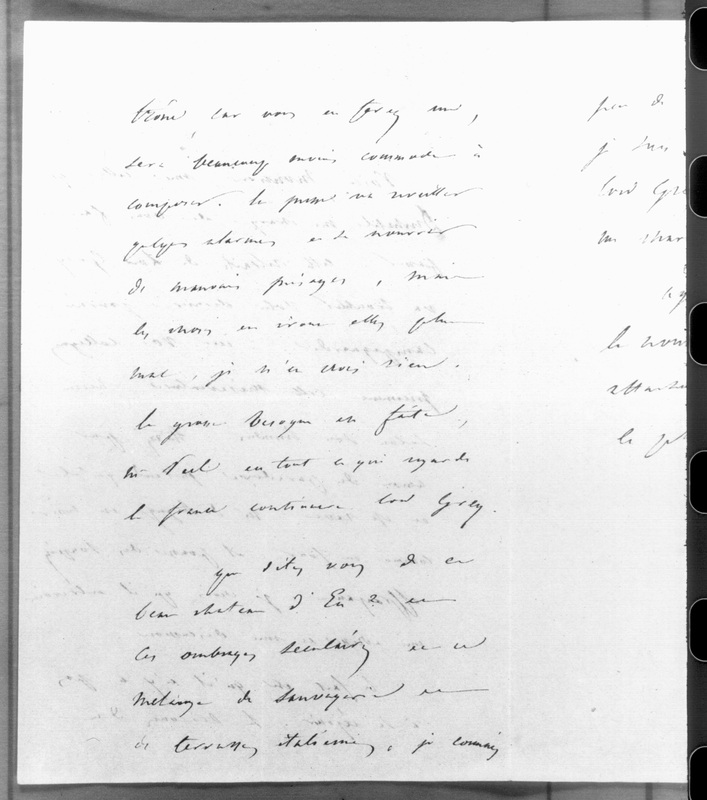 trône, car vous en ferez un,
sera beaucoup moins commode à
composer. la presse va réveiller
quelques alarmes et se nourrir
de mauvais présages, mais
les choses en iront elles plus
mal, je n'en crois rien.
la grosse besogne est faite,
Mr Peel en tout ce qui regarde
la france continuera lord Grey.
que dites vous de ce
beau chateau d'Eu? de
ces ombrages séculaires de ce
mélange de sauvagerie de
de terrasses italiennes, je connais
peu de
je suis
lord Gre
un char
la nou